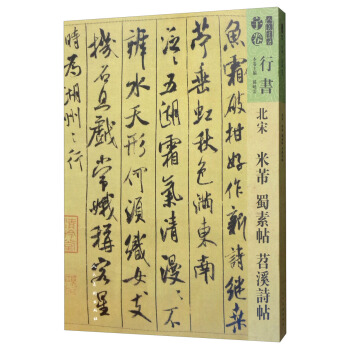 行書
北宋 米芾 蜀素帖 苕溪詩帖
魚霜破柑好作新詩継桒
苧垂虹秋色滿東南
泛〻五湖霜氣清漫〻不
辨水天形何須織女支
機石且戲常娥稱客星
時為湖州之行